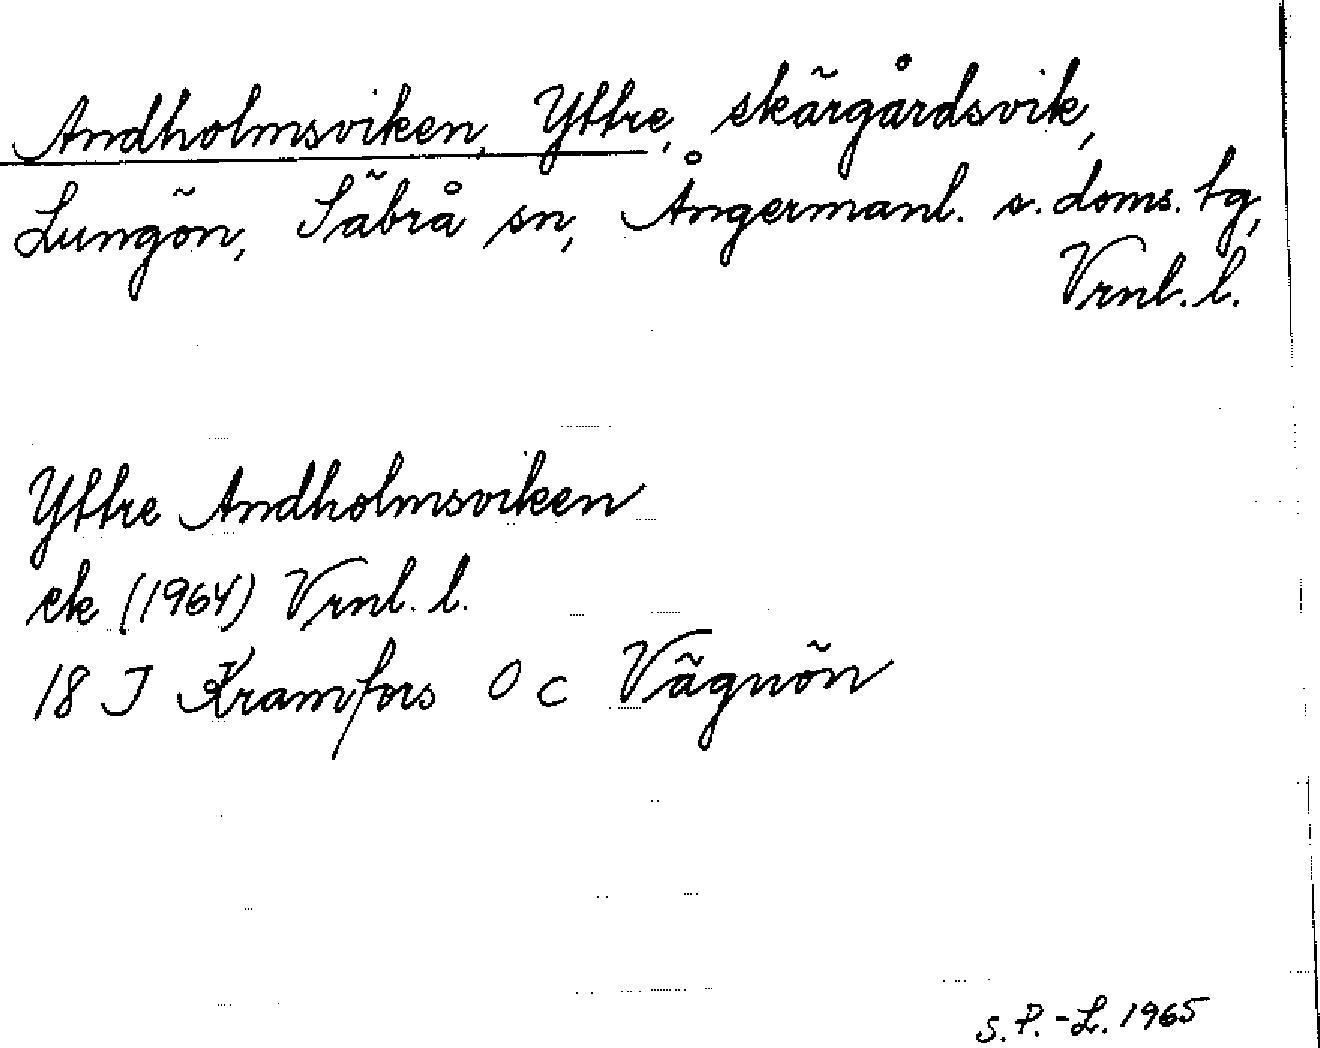 Andholmsviken, Yttre, skärgårdsvik,
Lungön, Säbrå sn, Ångermanl. s. doms. tg,
Vrnl. l.
Yttre Andholmsviken
ek (1964) Vrnl. l.
18 I Kramfors 0 c Vägnön
S. P.-L. 1965